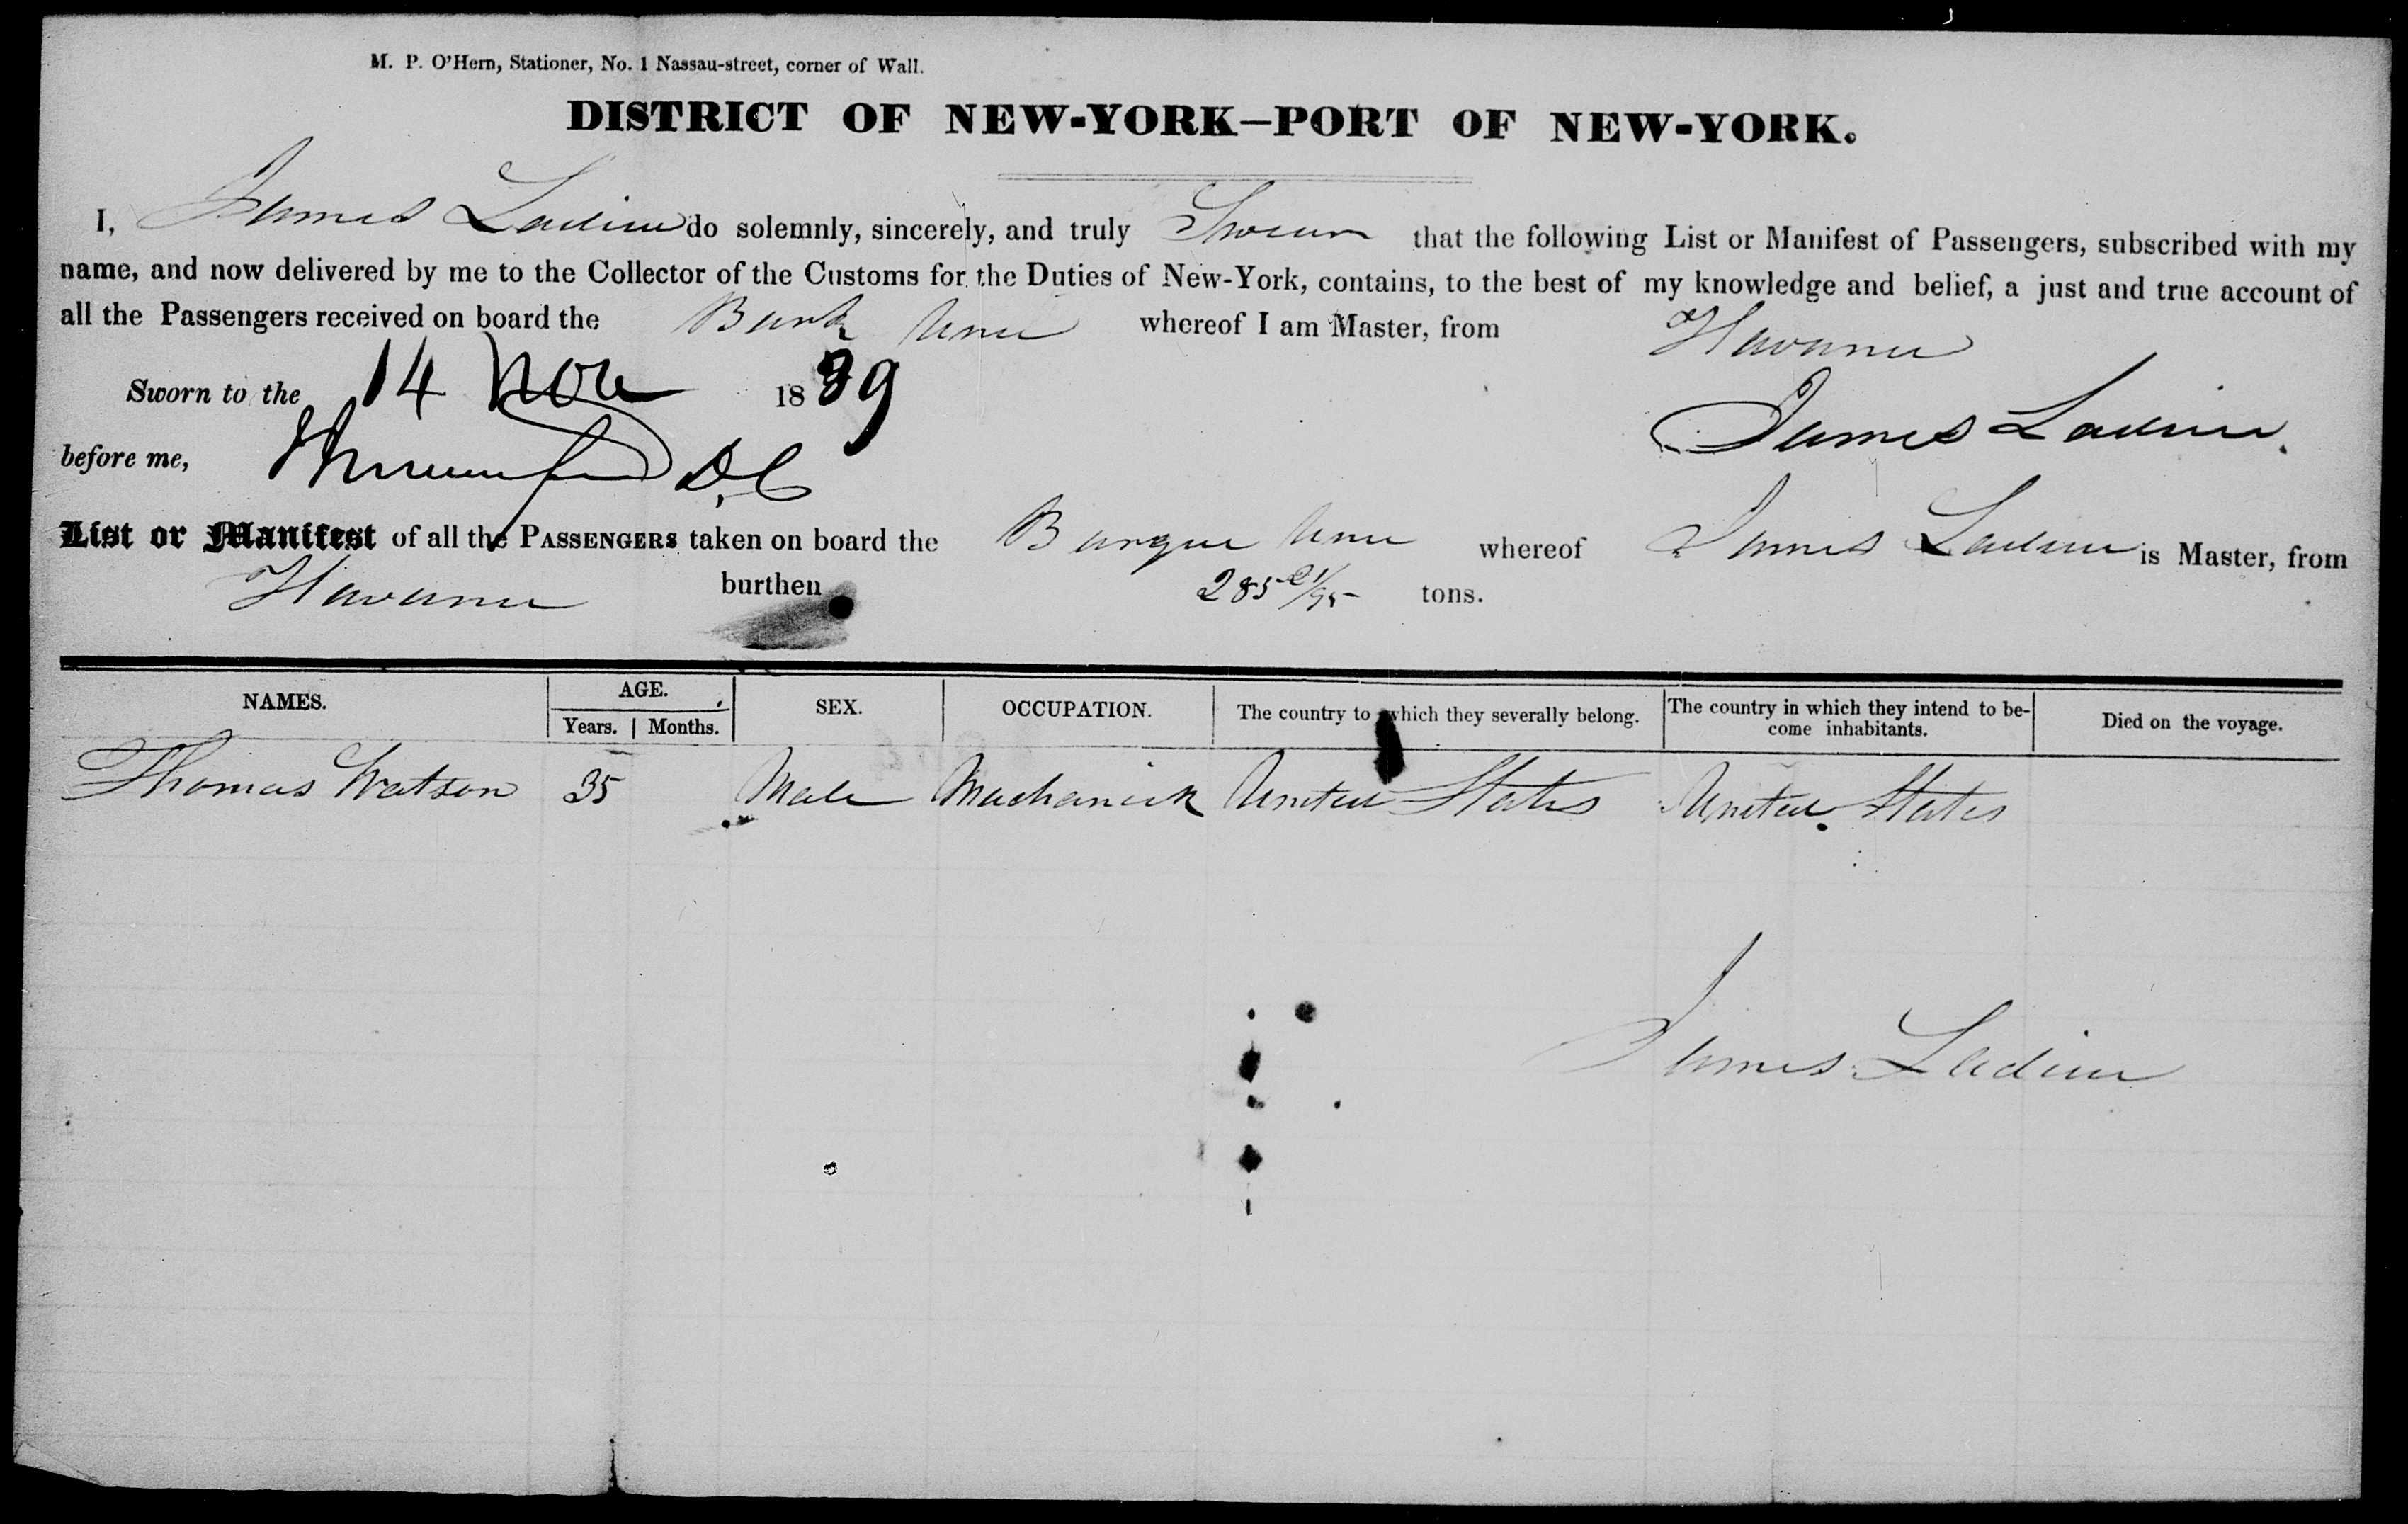 M. P. O'Hern, Stationer, No. 1 Nassau-street, corner of Wall.
DISTRICT OF NEW-YORK—PORT OF NEW-YORK.
I, James Ladieu do solemnly, sincerely, and truly Swear that the following List or Manifest of Passengers, subscribed with my
name, and now delivered by me to the Collector of the Customs for the Duties of New-York, contains, to the best of my knowledge and belief, a just and true account of
all the Passengers received on board the Bark whereof I am Master, from Havana
Sworn to the 14 Nov 1839
James
before me, D.C
List or Manifest of all the PASSENGERS taken on board the Barque whereof James is Master, from
Havana burthen 285 21/95 tons.
NAMES. AGE. SEX. OCCUPATION. The country to which they severally belong. The country in which they intend to be- Died on the voyage.
Years. Months. come inhabitants.
Thomas Watson 35 Male Machanick United States United States
James